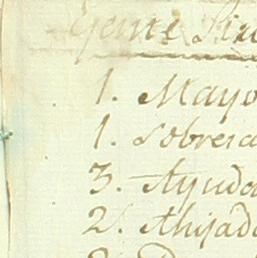 Gente
1. Mayo
1. Sobresa
3. Ayuda
2. Ahijad